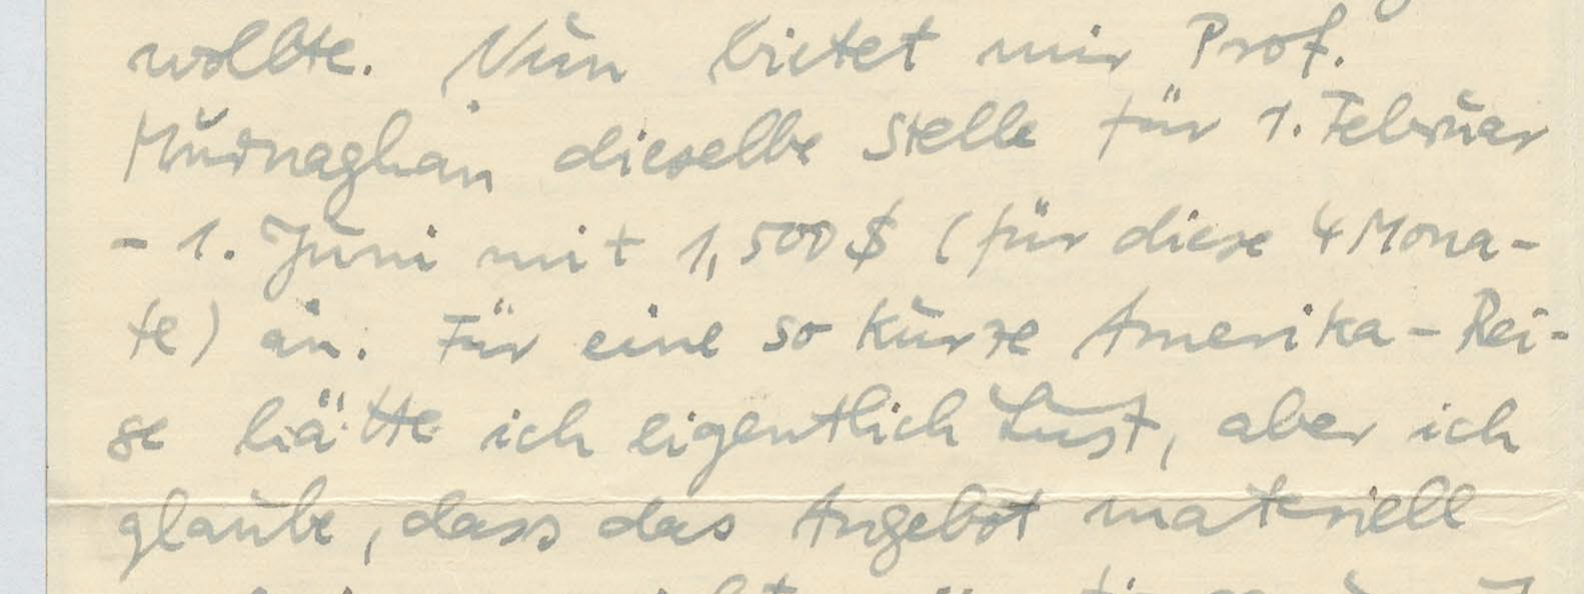 wollte. Nun bietet mir Prof.
Murnaghan dieselbe Stelle für 1. Februar
- 1. Juni mit 1,500 $ (für diese 4 Mona-
te) an. Für eine so kurze Amerika-Rei-
se hätte ich eigentlich Lust, aber ich
glaube, dass das Angebot materiell